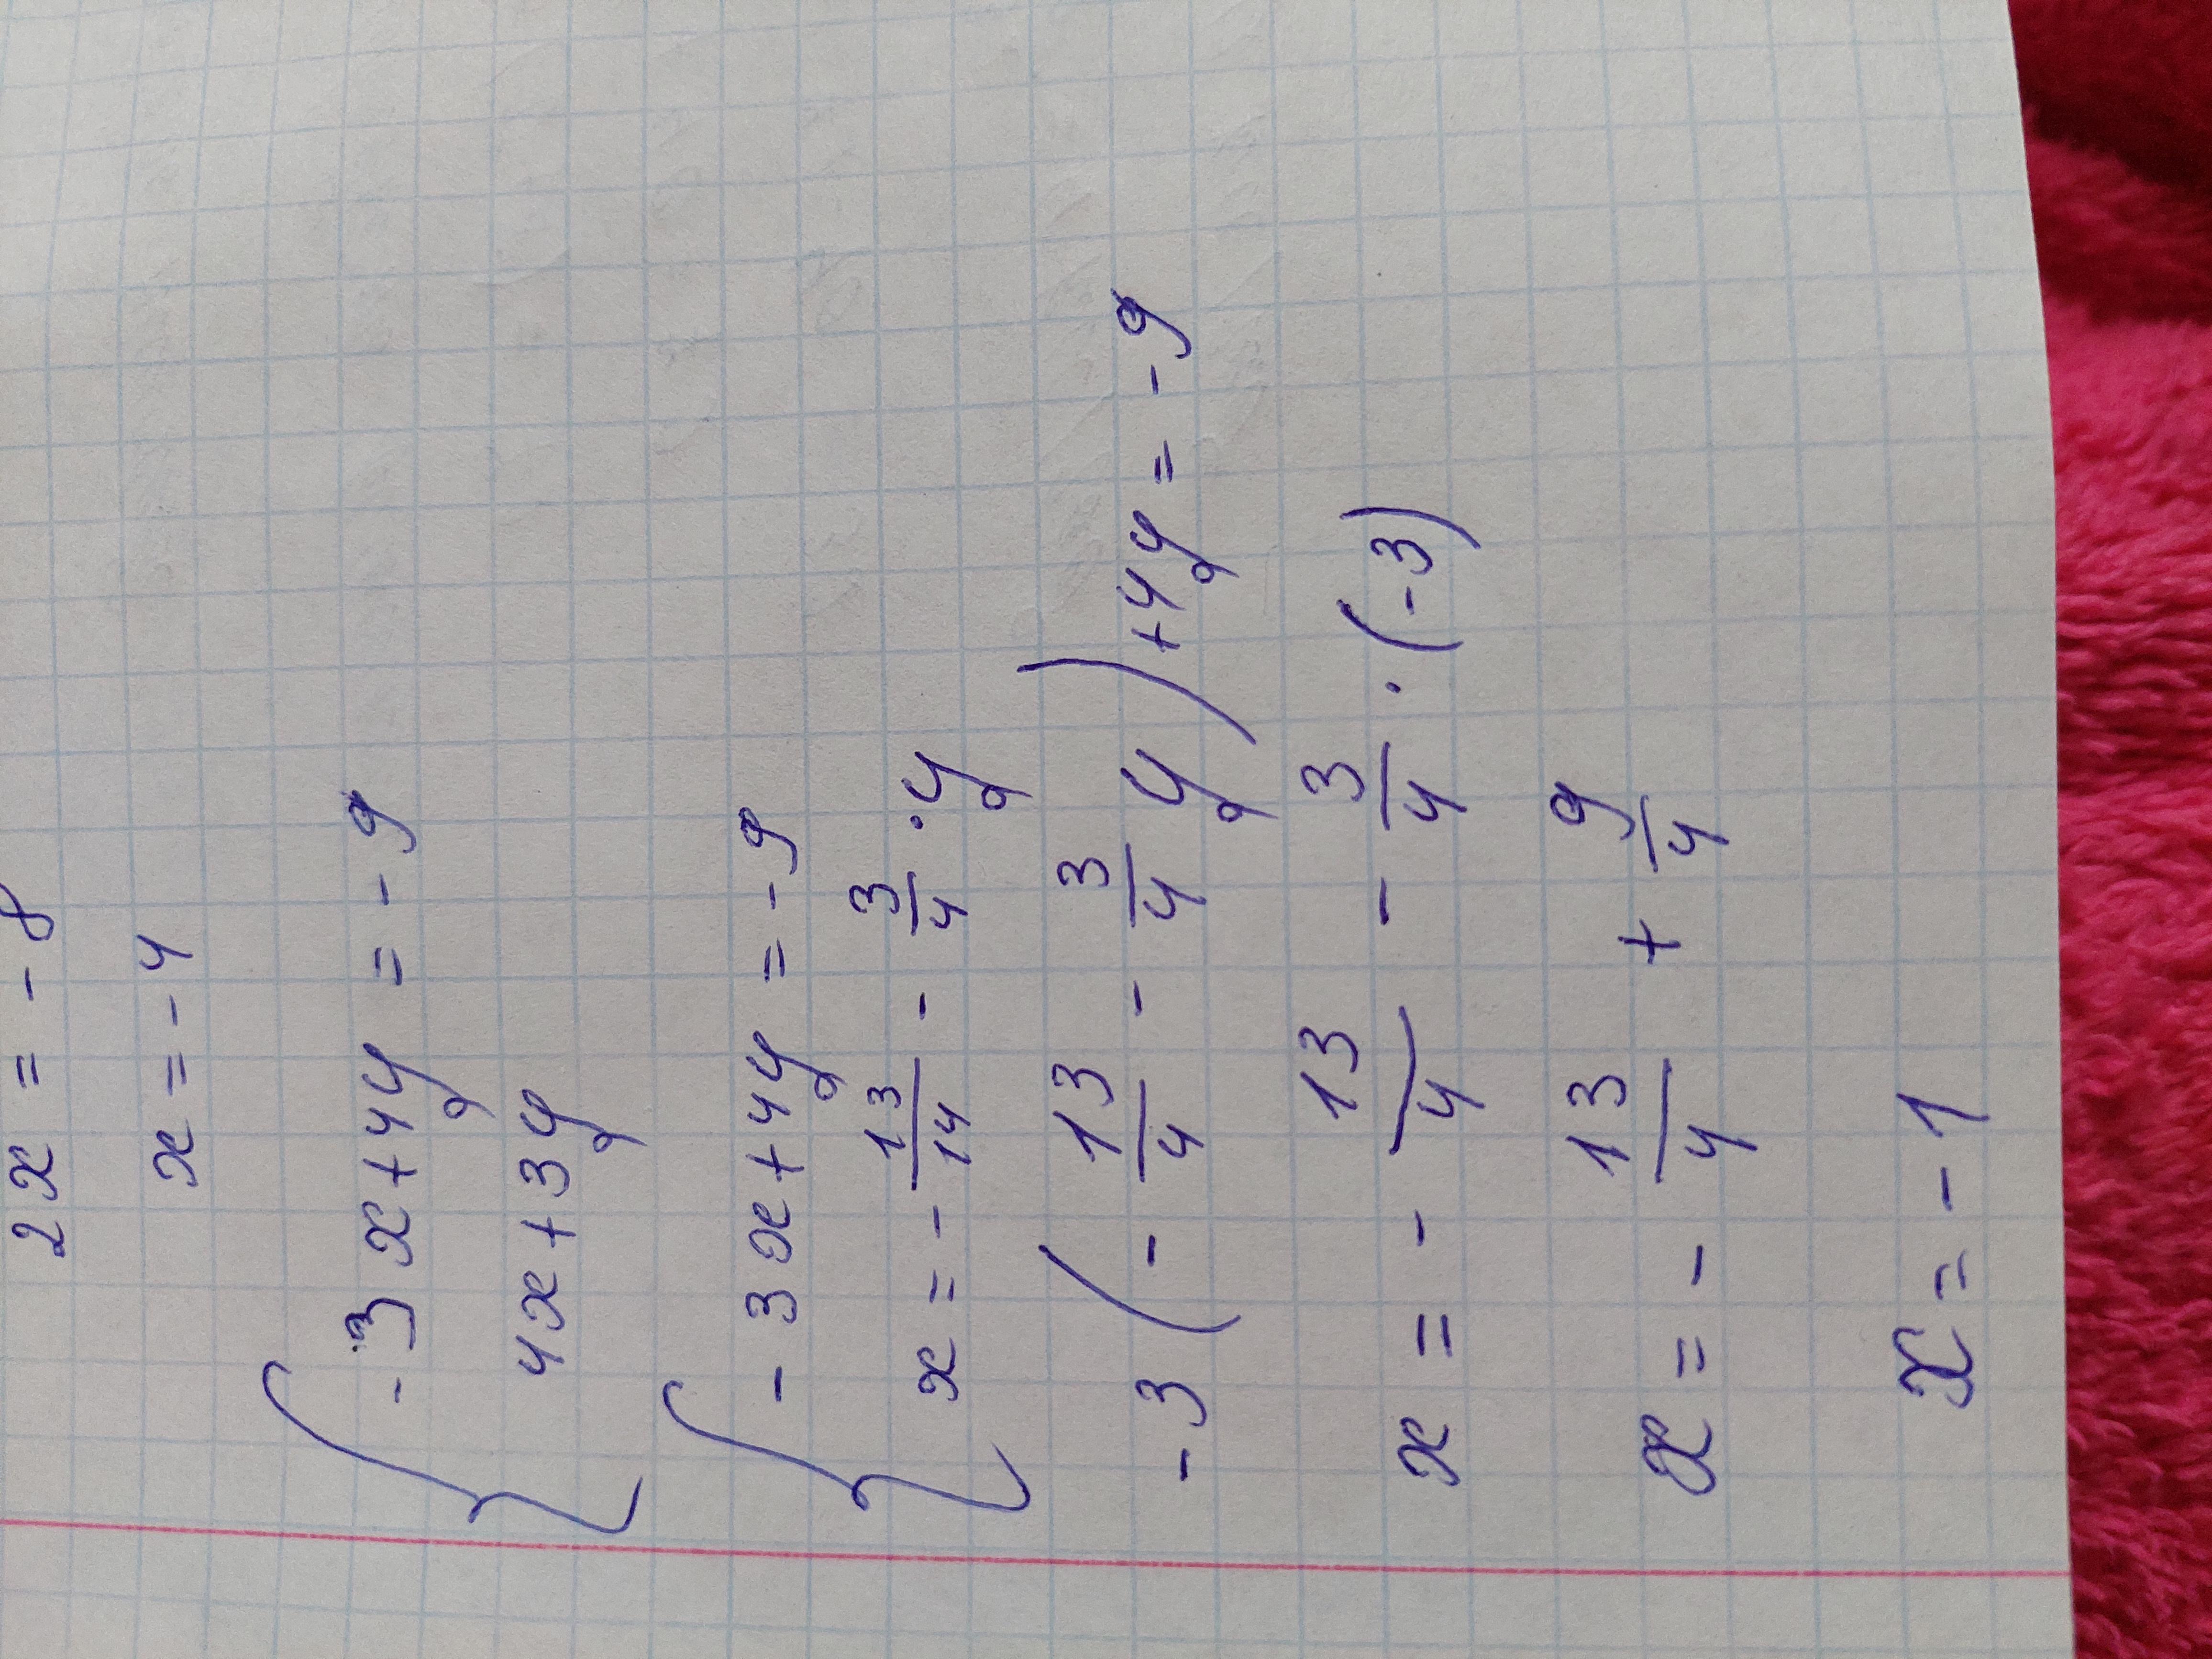 2x = -8
x = -4
{ -3x+4y = -9
4x+3y
{ -3x+4y = -9
x = - 13/14 - 3/4 · y
-3 ( - 13/4 - 3/4 y ) +4y = -9
x = - 13/4 - 3/4 · (-3)
x = - 13/4 + 9/4
x = -1